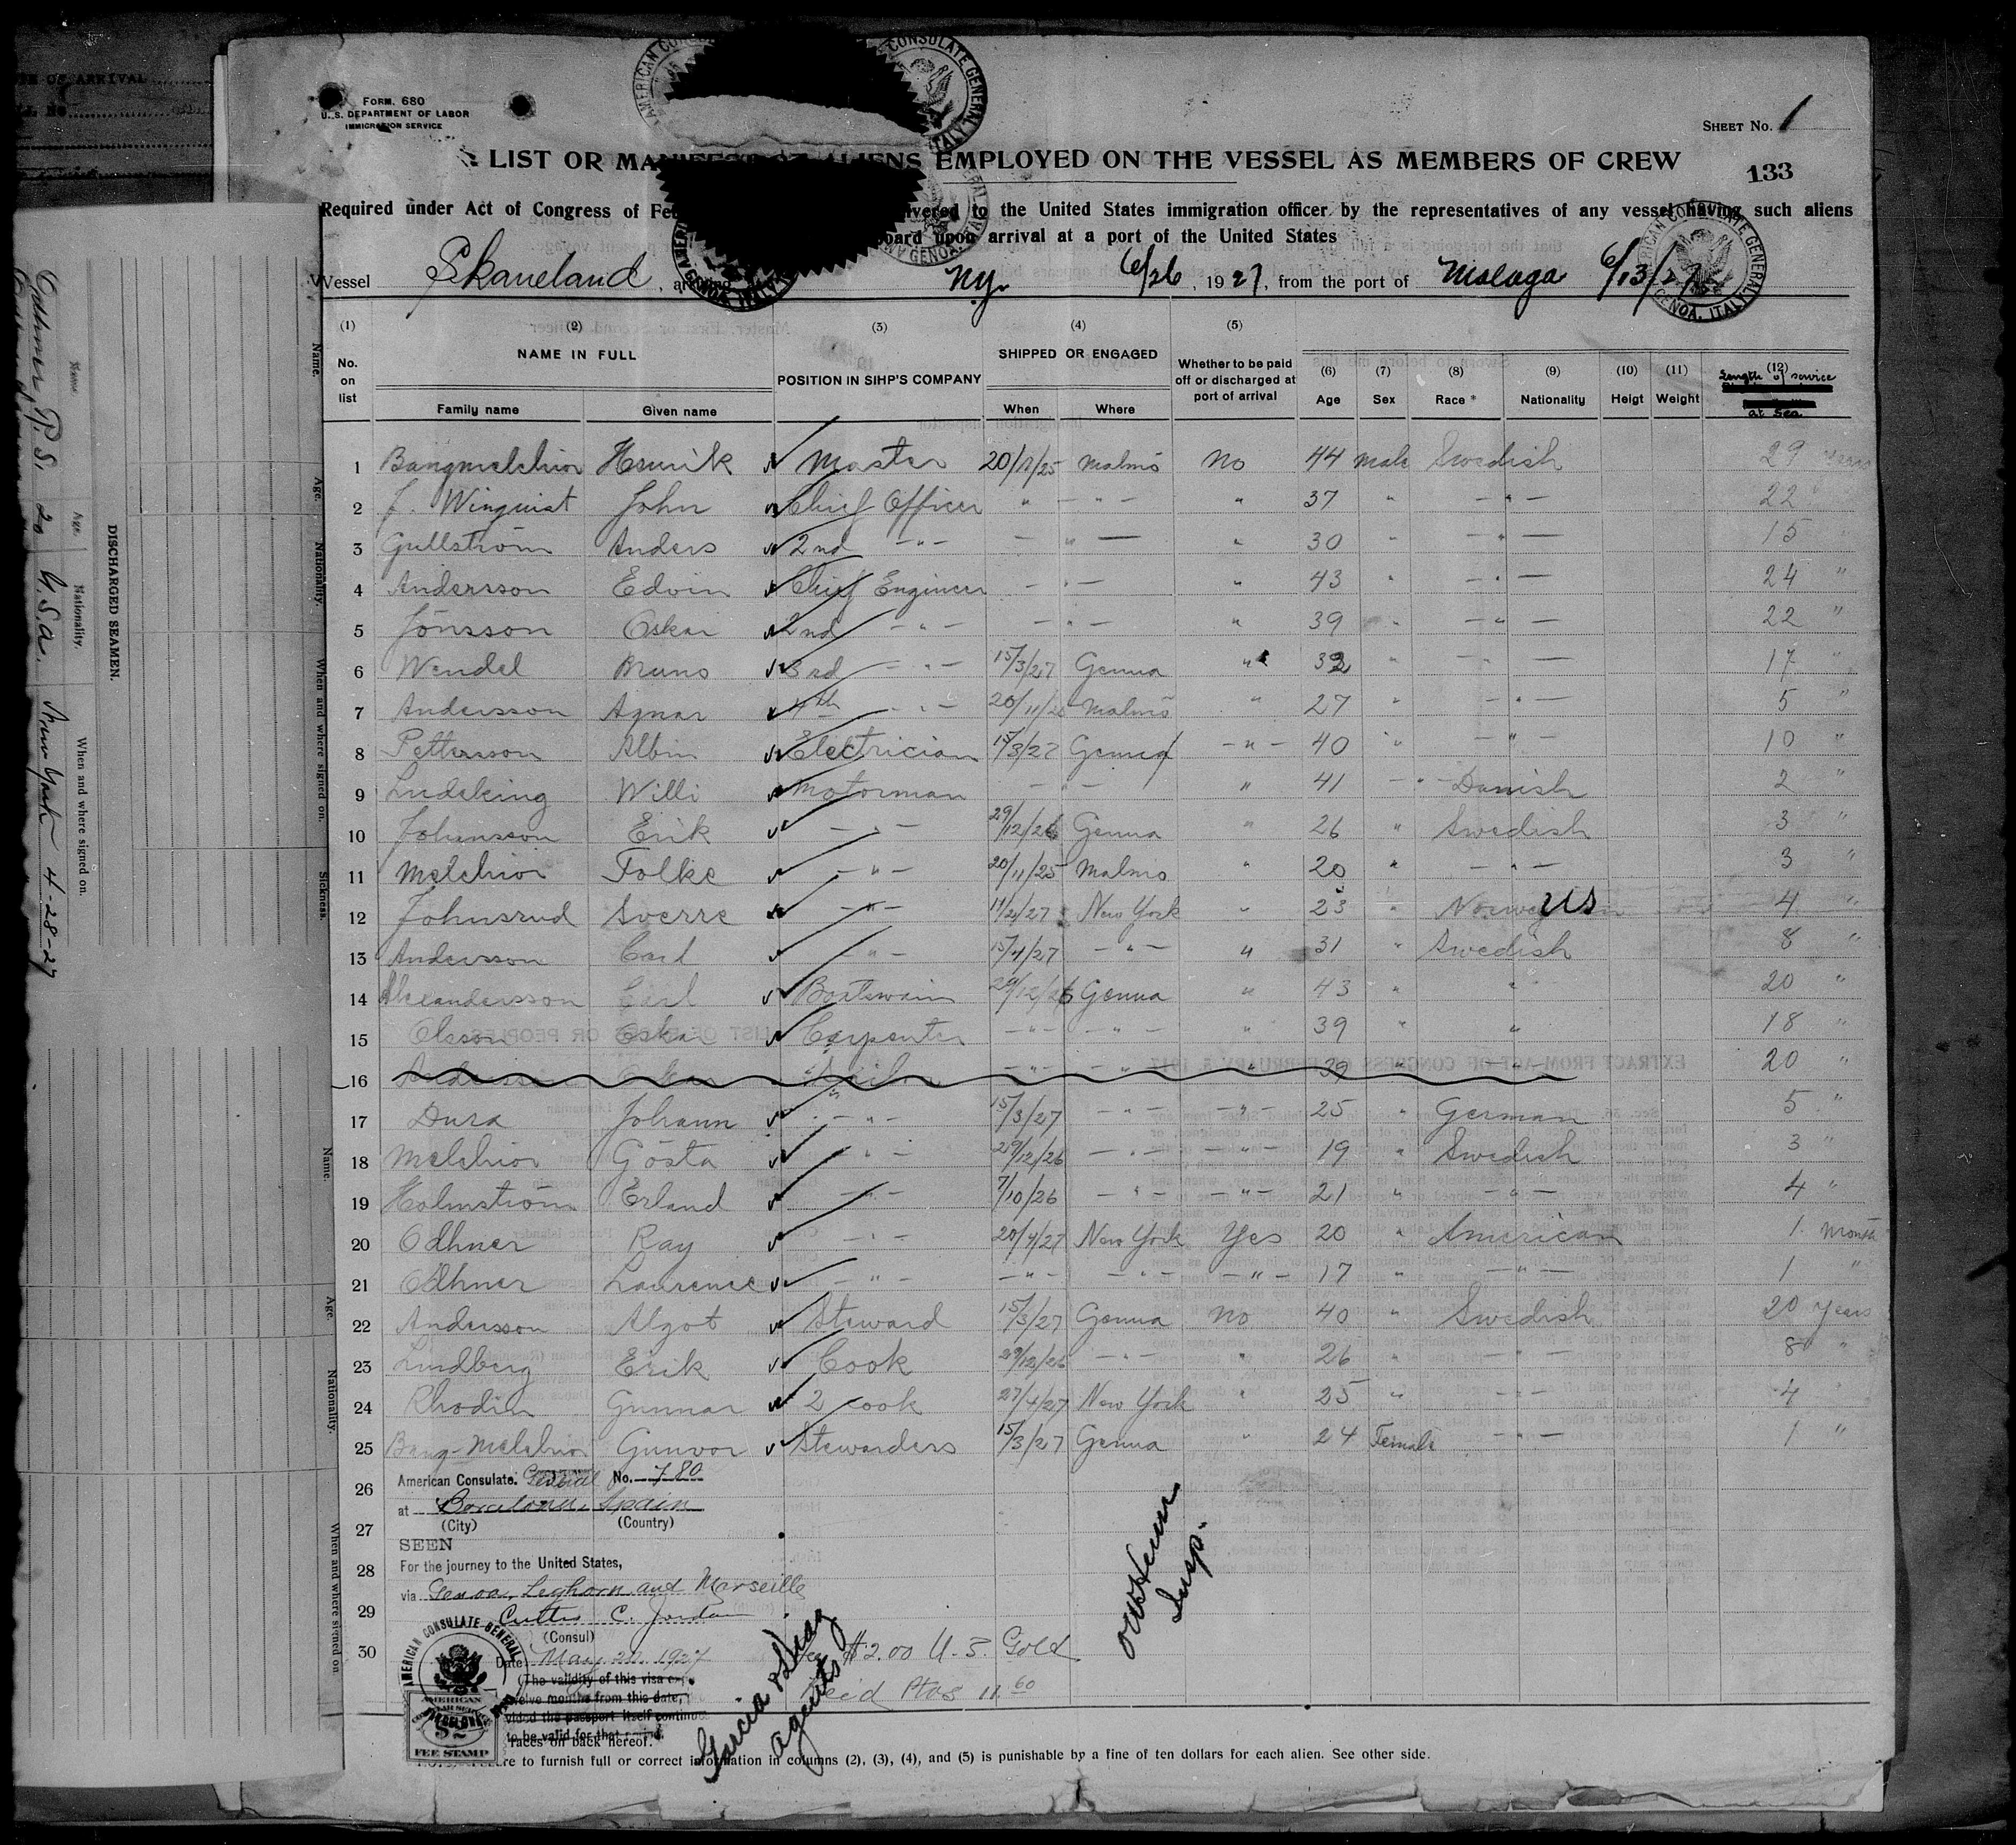 FORM. 680
U. S. DEPARTMENT OF LABOR
IMMIGRATION SERVICE
SHEET No. 1
LIST OR ALIENS EMPLOYED ON THE VESSEL AS MEMBERS OF CREW
133
Required under Act of Congress of to the United States immigration officer by the representatives of any vessel having such aliens
upon arrival at a port of the United States
Vessel Skaneland, N.y. 6/26, 1927, from the port of Malaga 6/13/27
(1) (2) (3) (4) (5) (6) (7) (8) (9) (10) (11) (12)
No. on list NAME IN FULL POSITION IN SIHP'S COMPANY SHIPPED OR ENGAGED Whether to be paid off or discharged at port of arrival Age Sex Race * Nationality Heigt Weight Length of service at Sea
Family name Given name When Where
1 Bangmelchior Henrik Master 20/11/25 Malmö No 44 male Swedish 29 years
2 J. Winquist John Chief Officer " - " - " 37 " - " - 22 "
3 Gullström Anders 2nd - " - - " - " 30 " - " - 15 "
4 Andersson Edvin Chief Engineer - " - " 43 " - " - 24 "
5 Jönsson Oskar 2nd - " - - " - " 39 " - " - 22 "
6 Wendel Bruno 3rd - " - 15/3/27 Genua " 32 " - " - 17 "
7 Andersson Agnar 4th - " - 20/11/26 Malmö " 27 " - " - 5 "
8 Pettersson Albin Electrician 15/3/27 Genua - " - 40 " - " - 10 "
9 Ludeking Willi Motorman - " - " 41 - " - Danish 2 "
10 Johansson Erik - " - 29/12/26 Genua " 26 " Swedish 3 "
11 Melchior Folke - " - 20/11/25 Malmö " 20 " - " - 3 "
12 Johnsrud Sverre - " - 11/2/27 New York " 23 " US 4 "
13 Andersson Carl - " - 15/4/27 - " - " 31 " Swedish 8 "
14 Alexandersson Carl Boatswain 29/12/26 Genua " 43 " " 20 "
15 Olsson Oskar Carpenter - " - - " - " 39 " " 18 "
16 - " - - " - " 39 20 "
17 Dura Johann - " - 15/3/27 - " - - " - 25 " German 5 "
18 Melchior Gösta - " - 29/12/26 - " - - " - 19 " Swedish 3 "
19 Holmström Erland - " - 7/10/26 - " - - " - 21 " - " - 4 "
20 Odhner Ray - " - 20/4/27 New York Yes 20 " American 1 month
21 Odhner Laurence - " - - " - - " - - " - 17 " - " - 1 "
22 Andersson Algot Steward 15/3/27 Genua No 40 " Swedish 20 years
23 Lindberg Erik Cook 29/12/26 - " - " 26 " - " - 8 "
24 Rhodin Gunnar 2 cook 27/4/27 New York " 25 " - " - 4 "
25 Bang-Melchior Gunvor Stewarders 15/3/27 Genua " 24 Female - " - 1 "
26 American Consulate. General No. 780
at Barcelona, Spain
27 (City) (Country)
SEEN
28 For the journey to the United States,
via Genoa, Leghorn and Marseille
29 Curtis C. Jordan
30 (Consul)
Date May 20. 1927
(The validity of this visa
twelve months from this date,
vided the passport itself continue
to be valid for that
faces on back hereof.
Fee $2.00 U. S. Gold
Ptas 11.60
Garcia & Diaz
agents
Insp.
re to furnish full or correct information in columns (2), (3), (4), and (5) is punishable by a fine of ten dollars for each alien. See other side.
AMERICAN CONSULATE GENERAL
BARCELONA
AMERICAN
FEE STAMP
AMERICAN CONSULATE GENERAL
GENOA, ITALY
OF ARRIVAL
DISCHARGED SEAMEN.
Name Age. Nationality. When and where signed on.
Odhner, R. S. 20 U.S.a. New York 4-28-27
Name. Age. Nationality. When and where signed on. Sickness.
Name. Age. Nationality. When and where signed on
EXTRACT FROM ACT OF CONGRESS OF FEBRUARY 5, 1917
LIST OF RACES OR PEOPLES